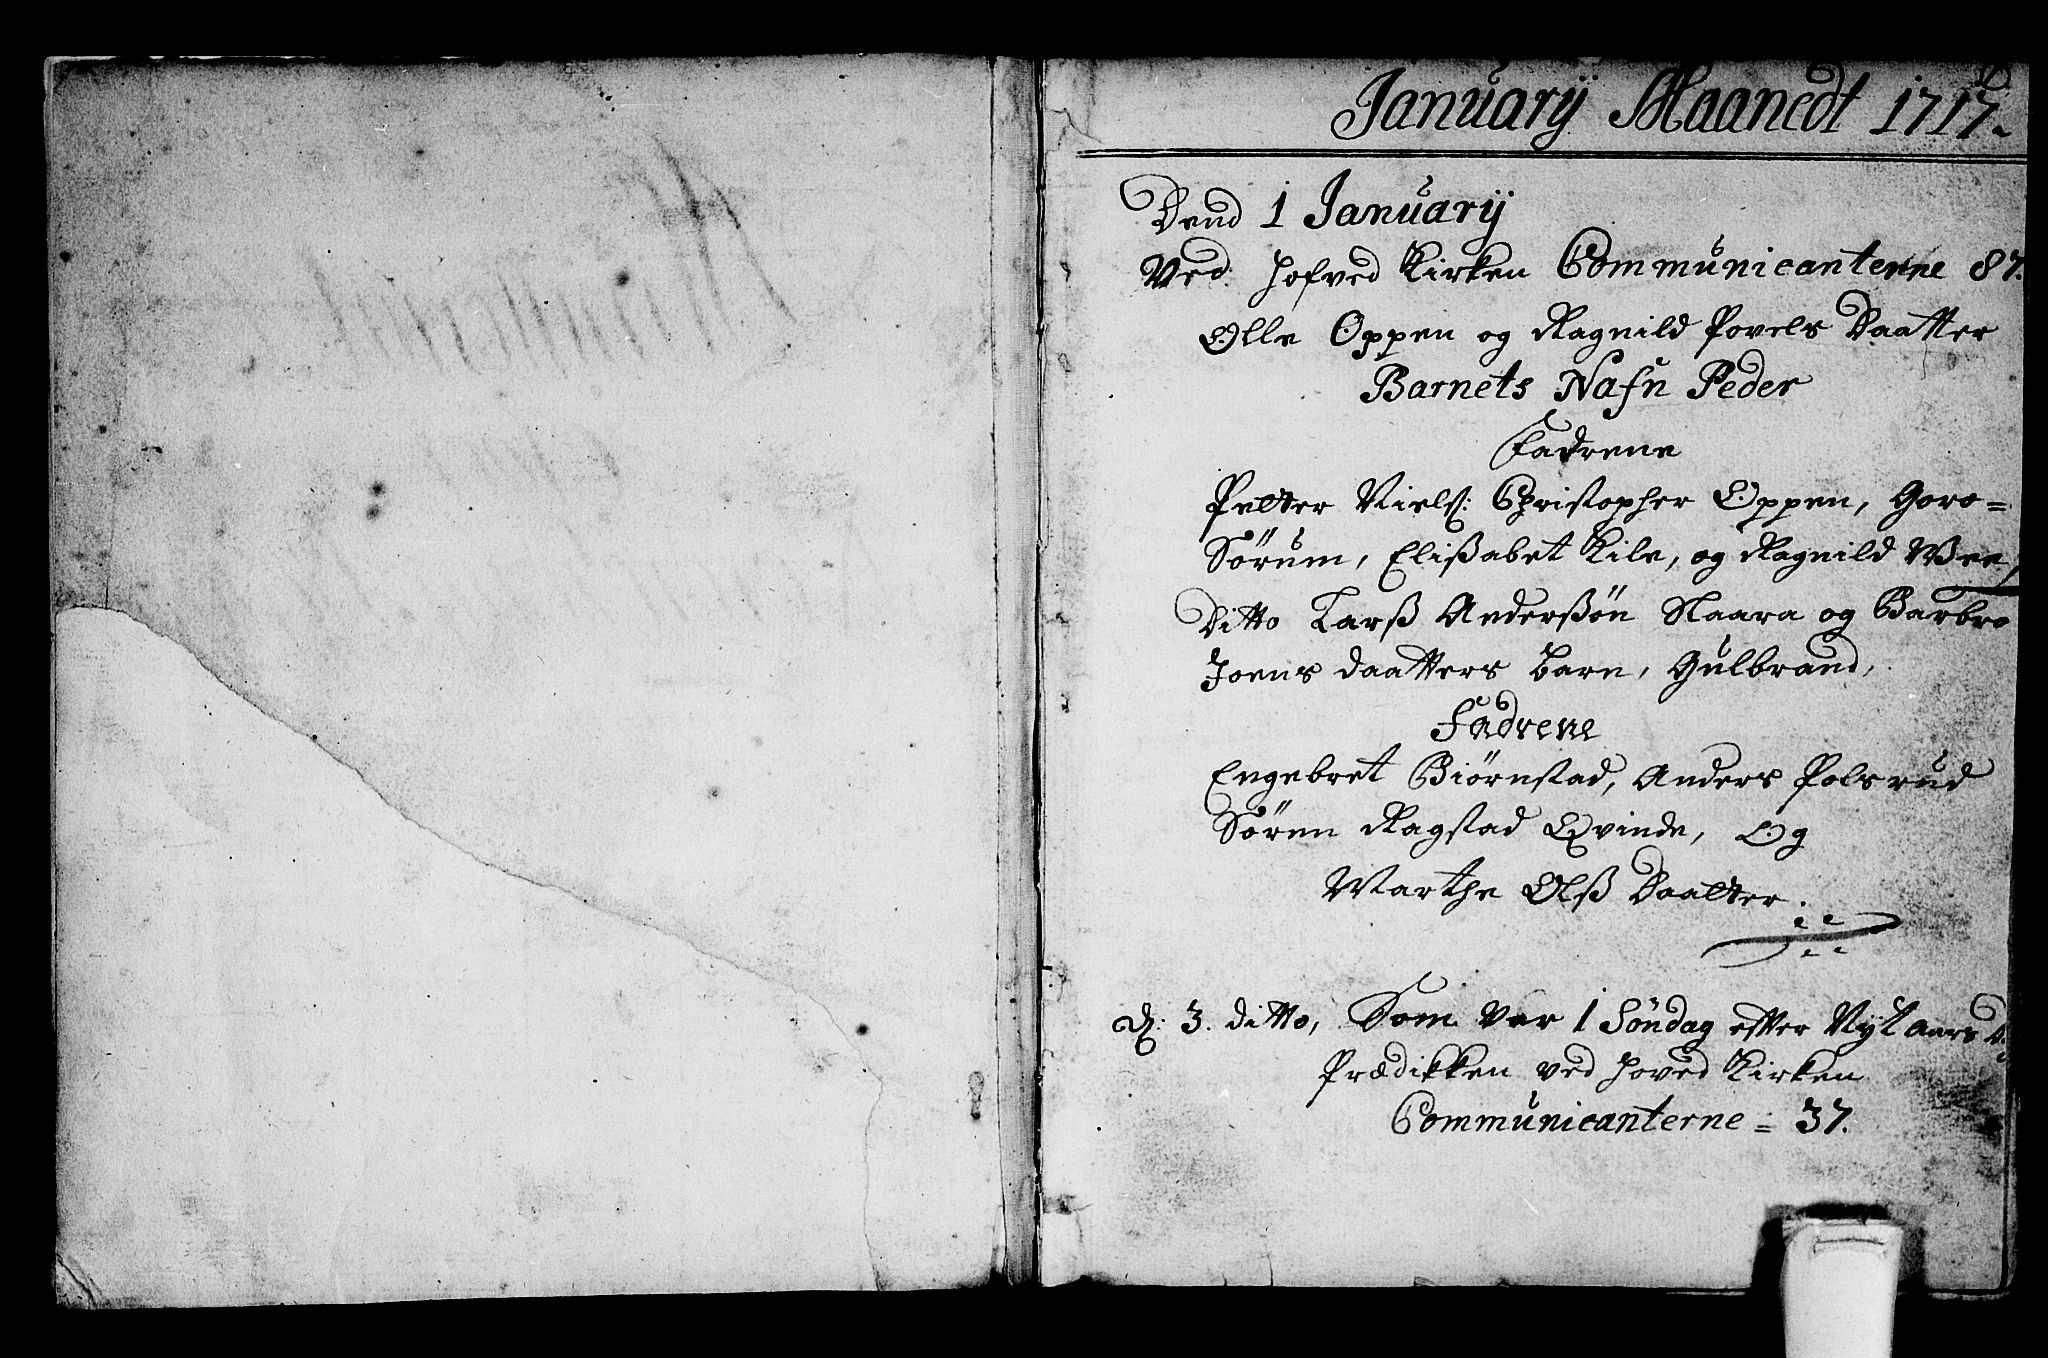 Januarÿ Maanedt 1717.
Dend 1 Januarÿ
Ved hofved Kirken Communicanterne 87.
Olle Oppen og Ragnild Povels Daatter
Barnets Nafn Peder
Fadrene
Petter Niels: Christopher Oppen, Goro=
Sørum, Elißabet Kile, og Ragnild Wee,
Ditto Larß Anderßøn Naara og Barbro
Joens daatters barn, Gulbrand,
Fadrene
Engebret Biørnstad, Anders Polsrud
Søren Ragstad Qvinde, Og
Marthe Olß Daatter.
d: 3. ditto, Som var 1 Søndag effter Nÿt aars D.
Prædikken ved hoved Kirken
Communicanterne = 37.